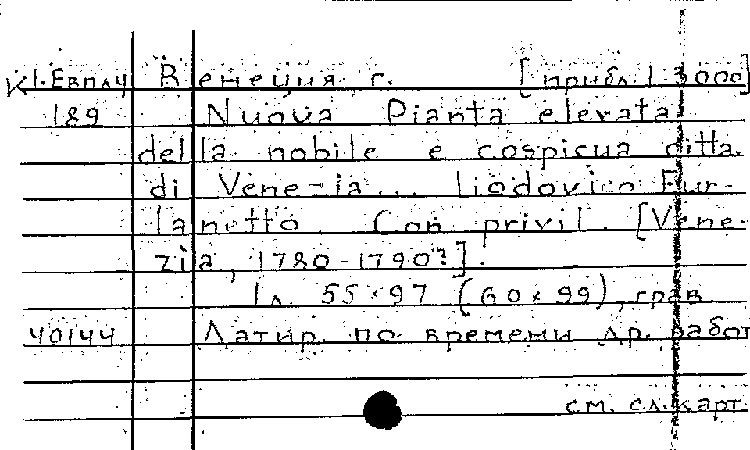 К 1.Евпл4 Венеция, г. [прибл. 1:3000]
189 Nuova Pianta elevata
della nobile e cospicua citta
di Venezia... Liodovico Fur-
lanetto. Con privil. [Vene-
zia, 1780-1790?].
1 л. 55×97 (60×99), грав
40144 Датир. по времени др. работ
см. сл. карт.